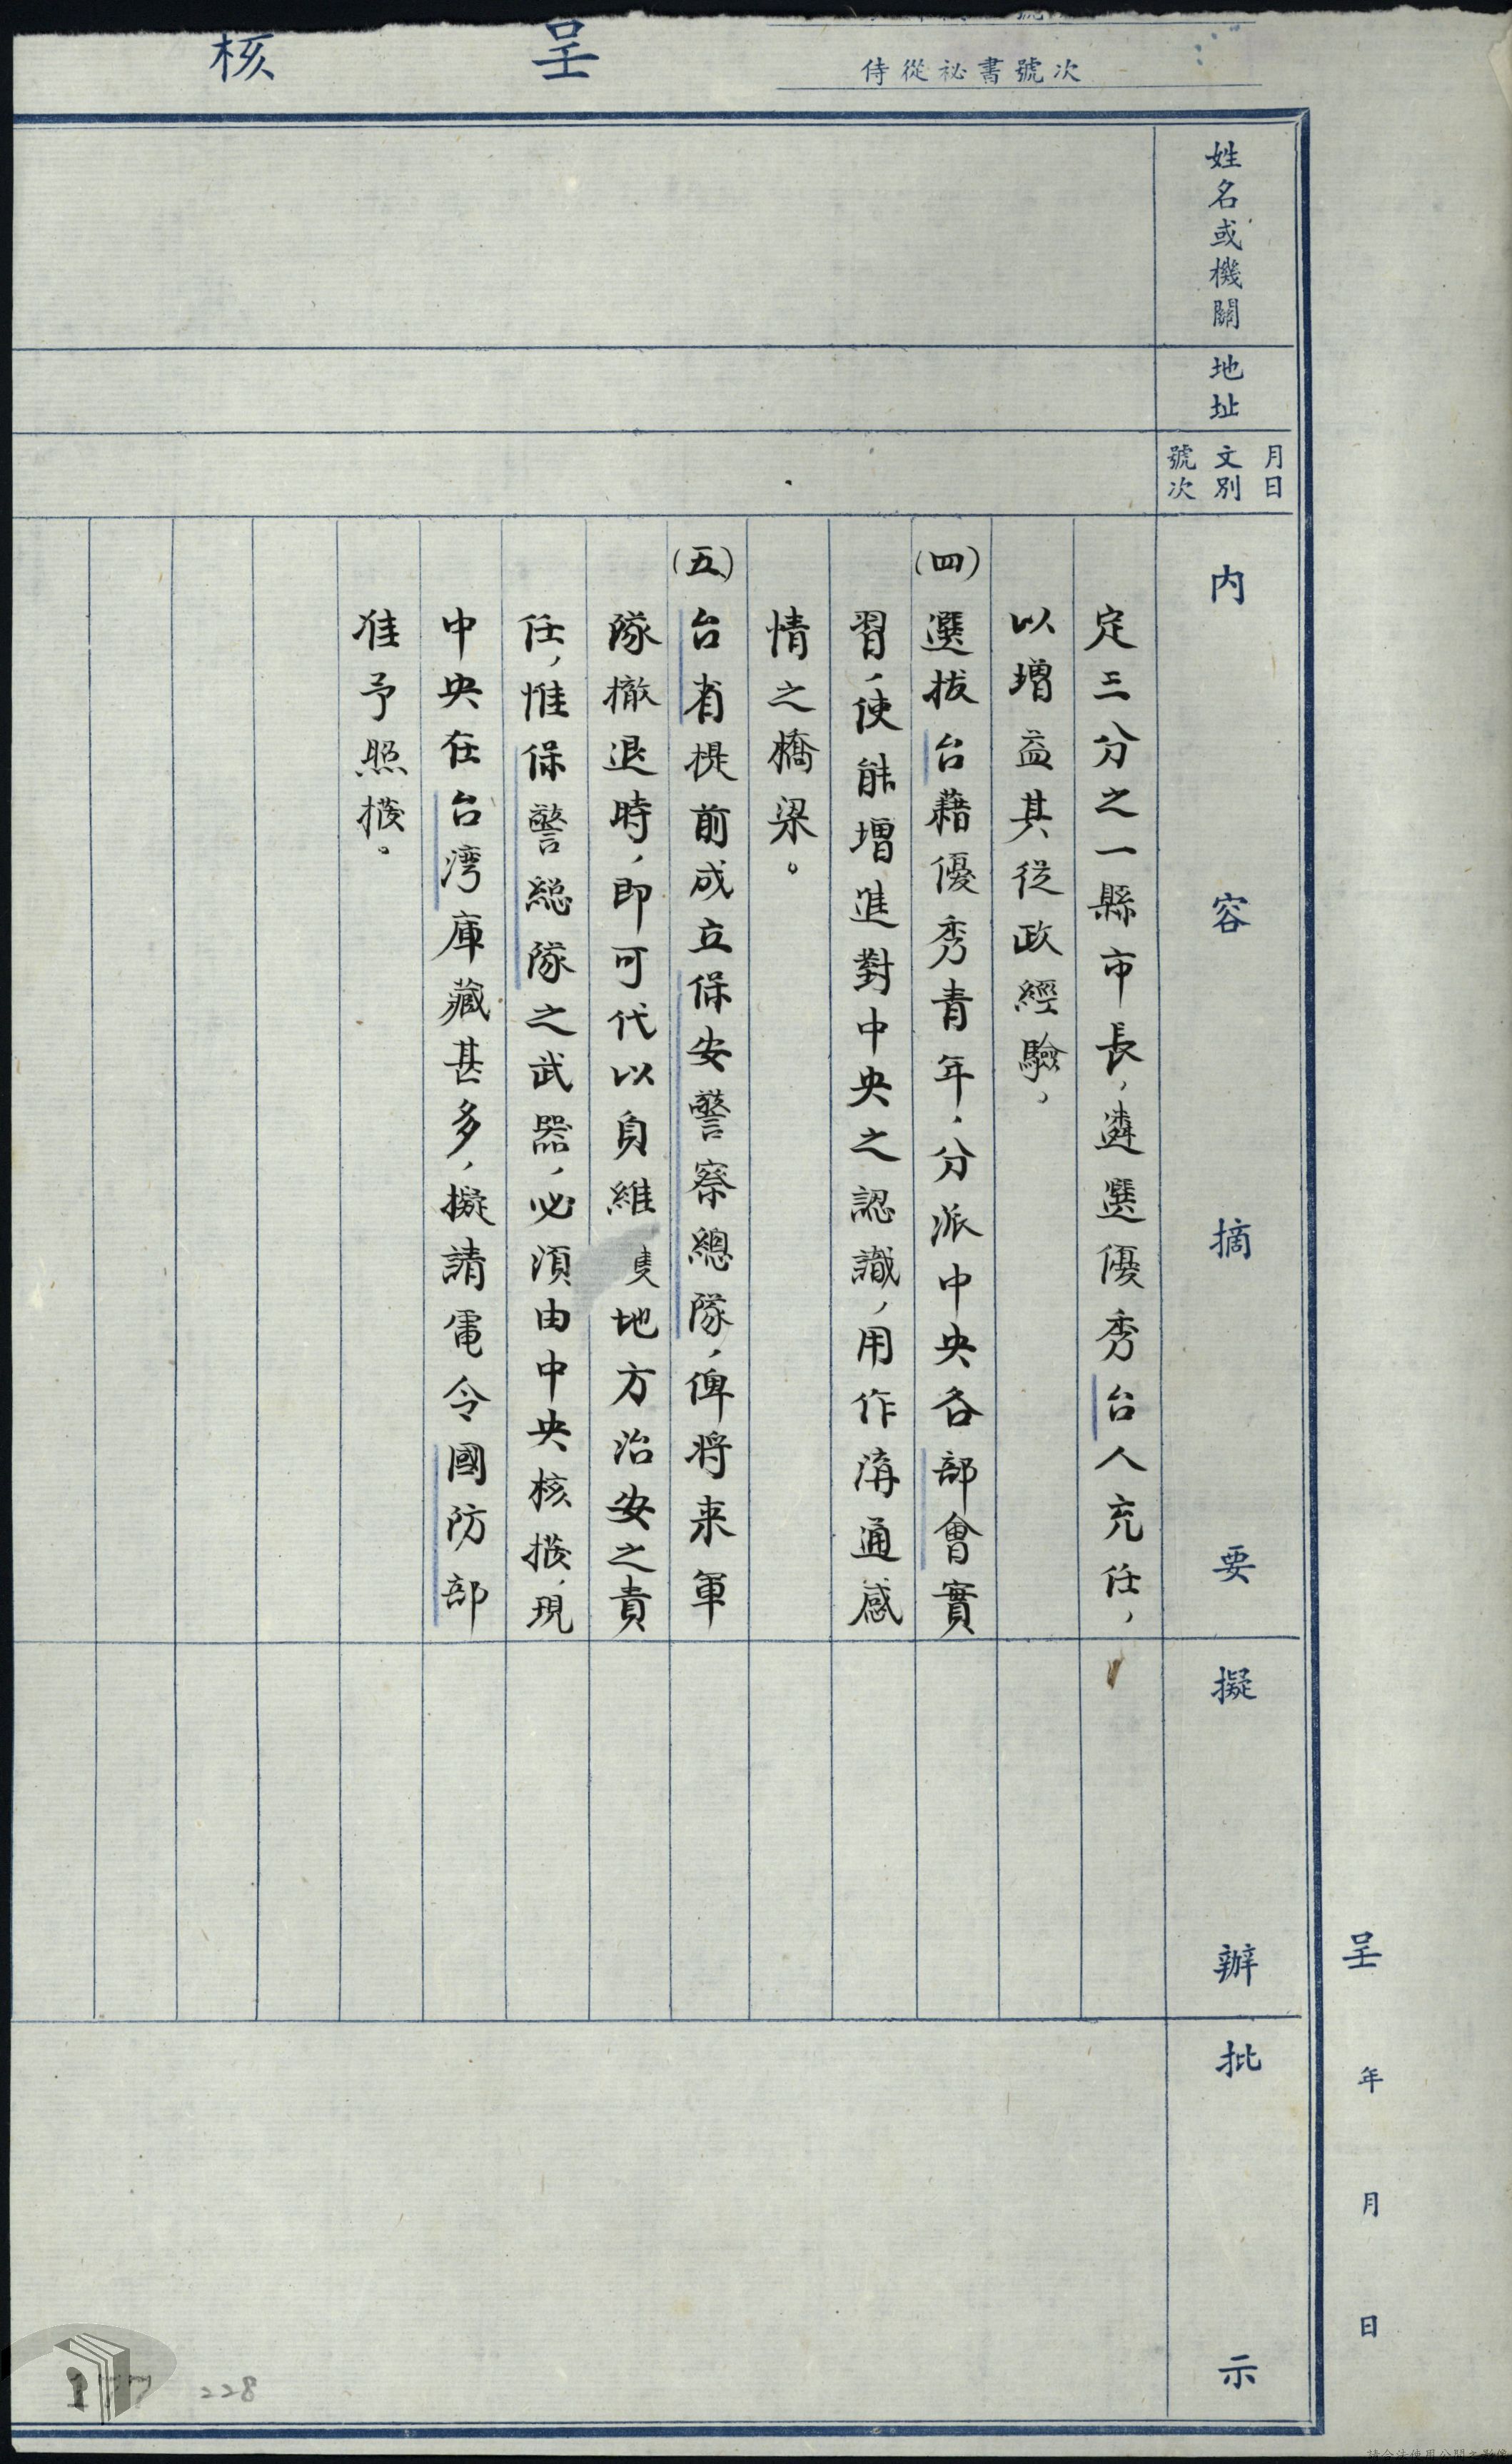 呈核
侍從祕書號次
呈 年 月 日
姓名或機關
地址
月日
文別
號次
內容摘要
擬辦
批示
定三分之一縣市長，遴選優秀台人充任，
以增益其從政經驗，
(四)選拔台藉優秀青年，分派中央各部會實
習，使能增進對中央之認識，用作溝通感
情之橋梁。
(五)台省提前成立保安警察總隊，俾將来軍
隊撤退時，即可代以負維地方治安之責
任，惟保警総隊之武器，必須由中央核撥，現
中央在台湾庫藏甚多，擬請電令國防部
准予照撥。
177
228